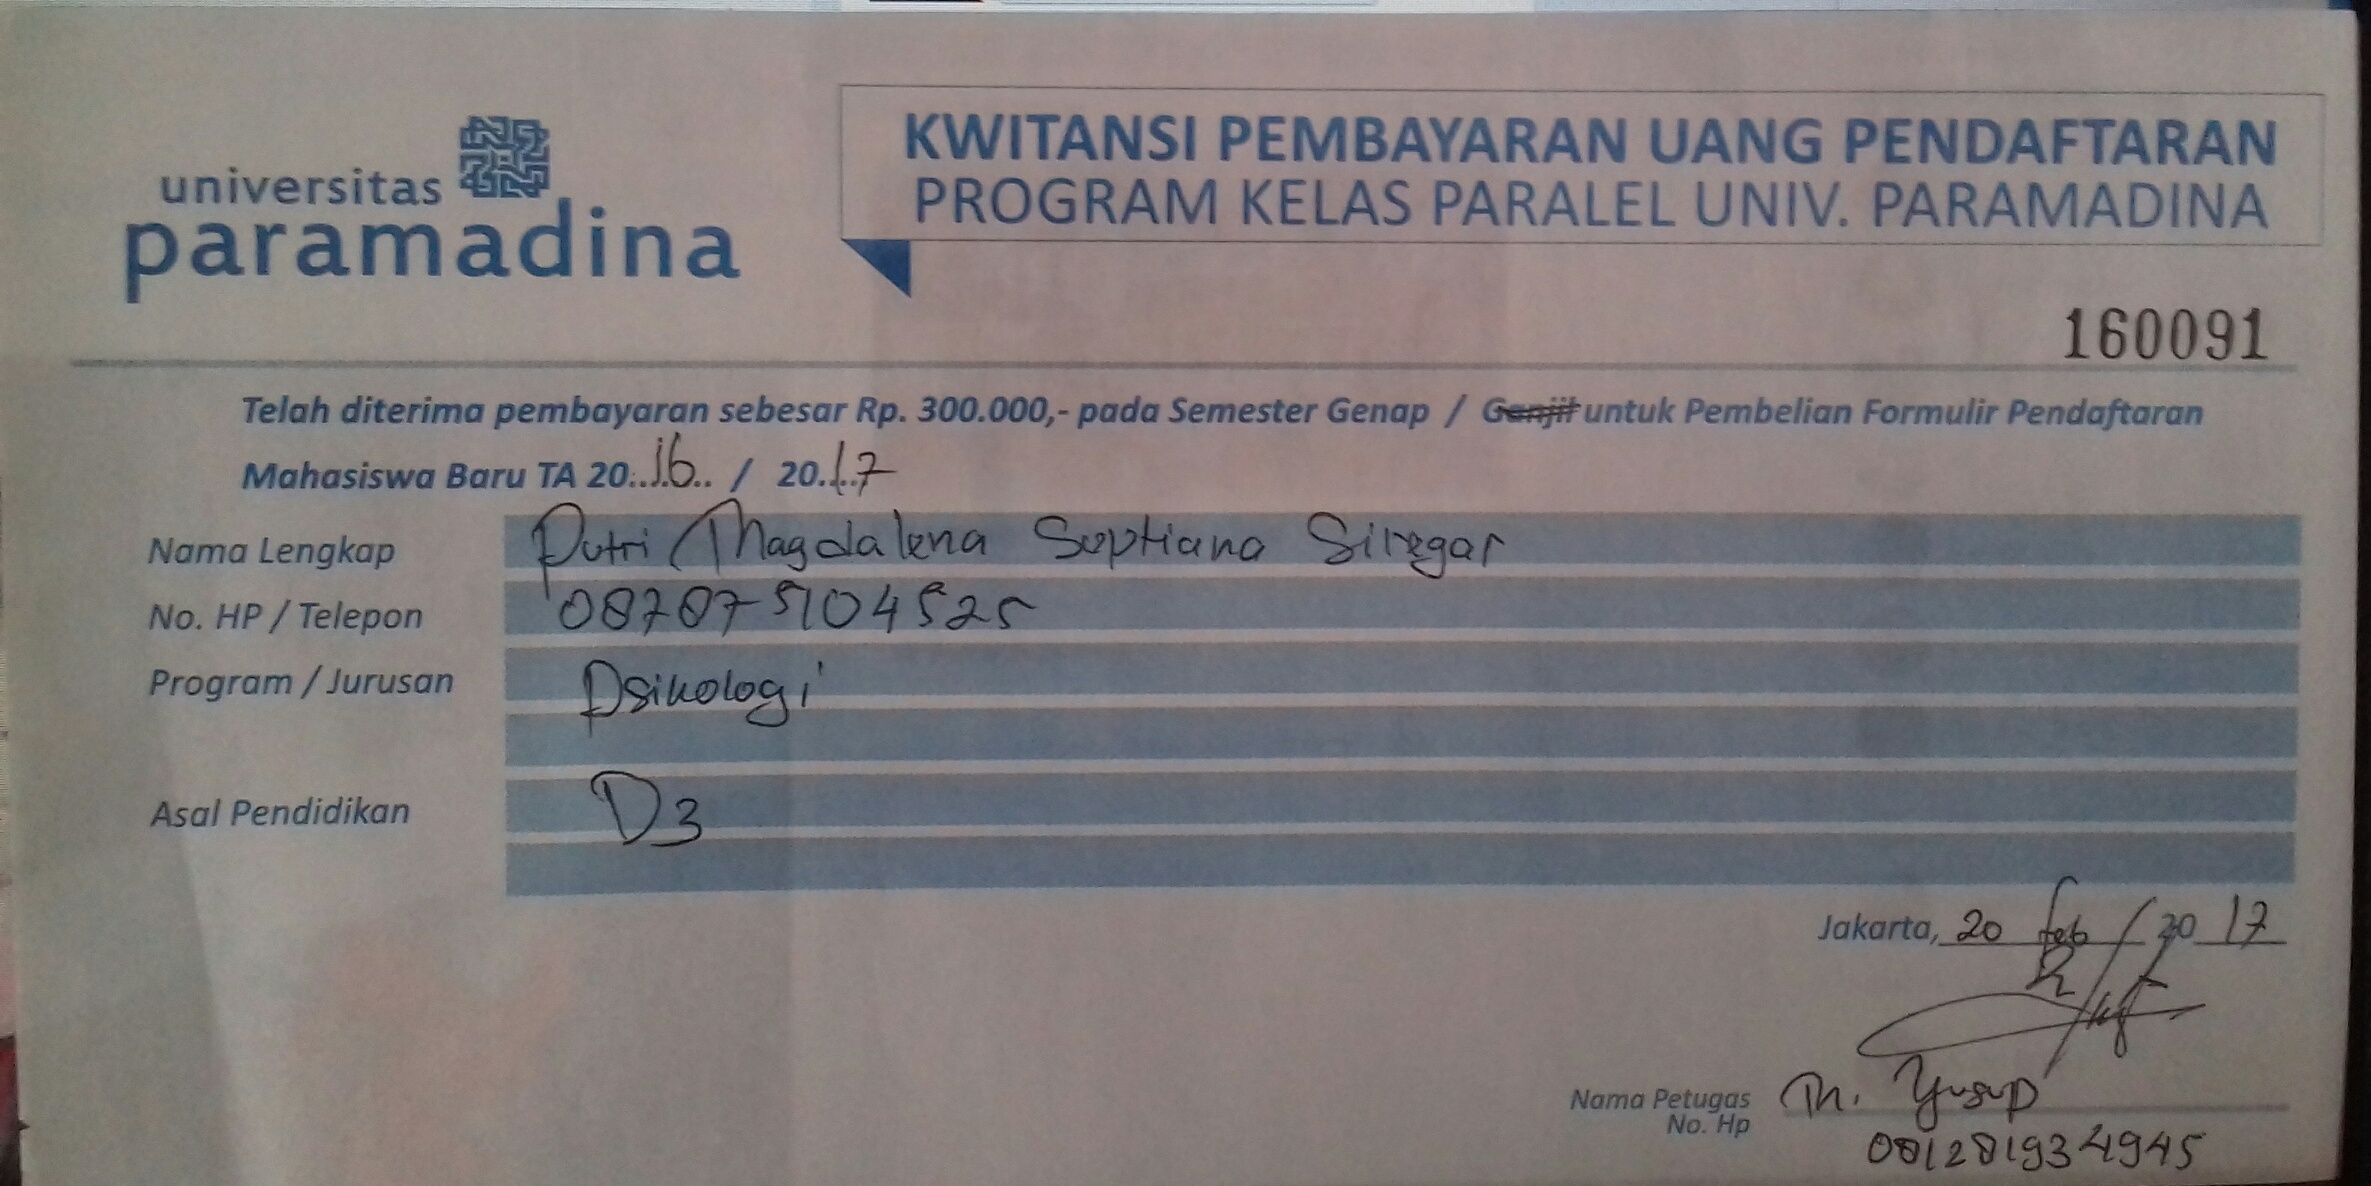 universitas
paramadina
KWITANSI PEMBAYARAN UANG PENDAFTARAN
PROGRAM KELAS PARALEL UNIV. PARAMADINA
160091
Telah diterima pembayaran sebesar Rp. 300.000,- pada Semester Genap / Ganjil untuk Pembelian Formulir Pendaftaran
Mahasiswa Baru TA 20..16.. / 20..17
Nama Lengkap Putri Magdalena Septiana Siregar
No. HP / Telepon 087875104525
Program / Jurusan Psikologi
Asal Pendidikan D3
Jakarta, 20 feb / 2017
Nama Petugas M. Yusup
No. Hp 081281934945